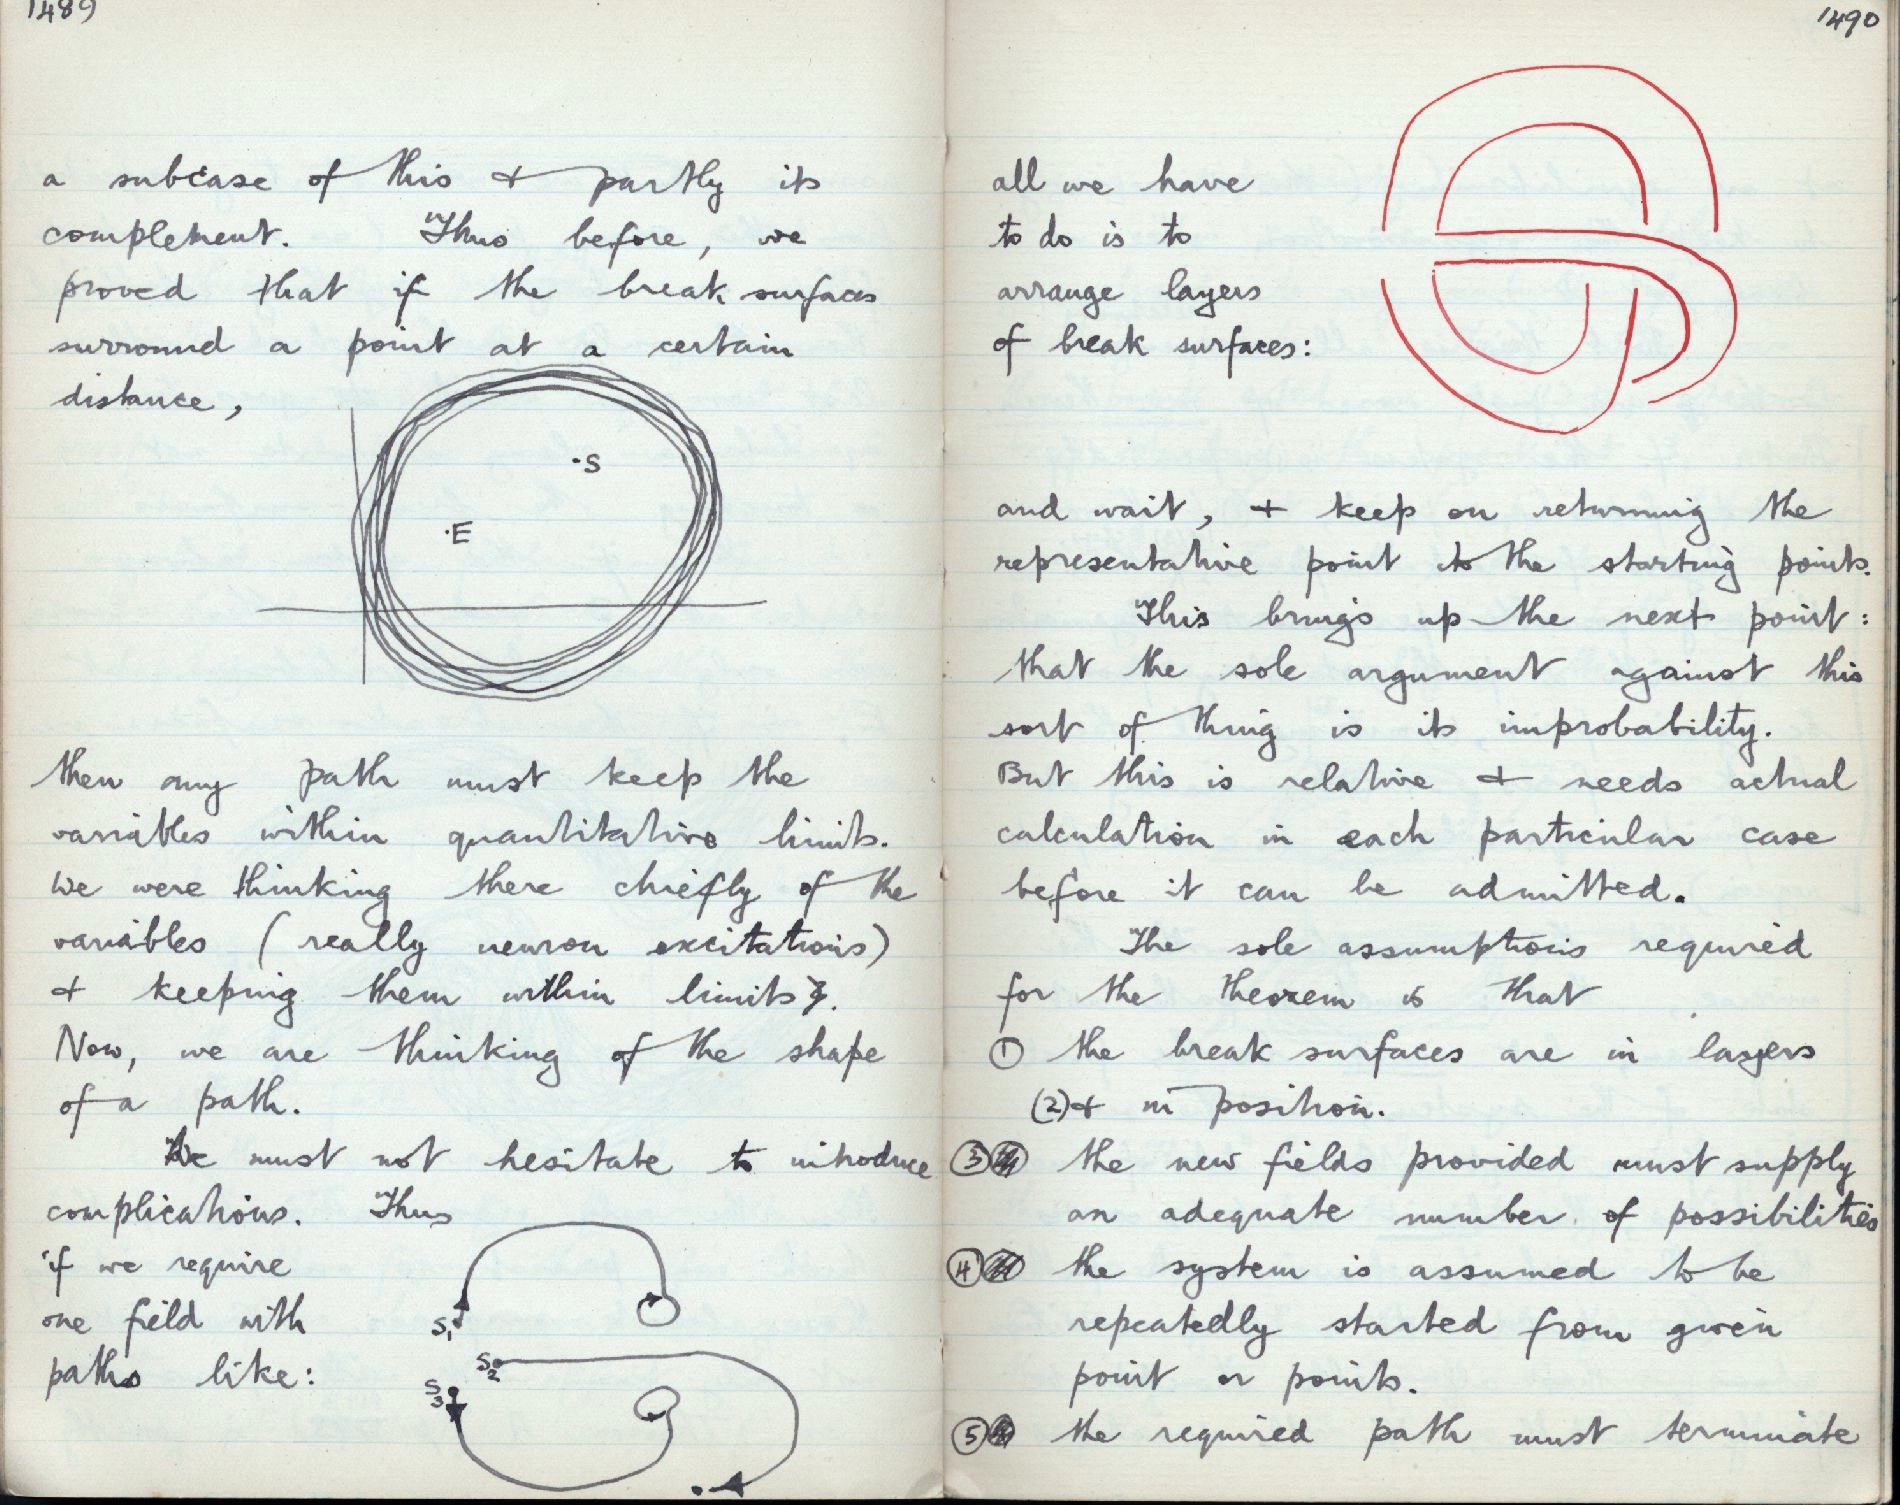 1489
a subcase of this & partly its
complement. Thus before, we
proved that if the break surfaces
surround a point at a certain
distance,
S
E
then any path must keep the
variables within quantitative limits.
We were thinking there chiefly of the
variables (really neuron excitations)
& keeping them within limits.
Now, we are thinking of the shape
of a path.
We must not hesitate to introduce
complications. Thus
if we require
one field with
paths like:
S1
S2
S3
1490
all we have
to do is to
arrange layers
of break surfaces:
and wait, & keep on returning the
representative point to the starting points.
This brings up the next point:
that the sole argument against this
sort of thing is its improbability.
But this is relative & needs actual
calculation in each particular case
before it can be admitted.
The sole assumptions required
for the theorem is that
① the break surfaces are in layers
(2) & in position.
③ the new fields provided must supply
an adequate number of possibilities
④ the system is assumed to be
repeatedly started from given
point or points.
⑤ the required path must terminate